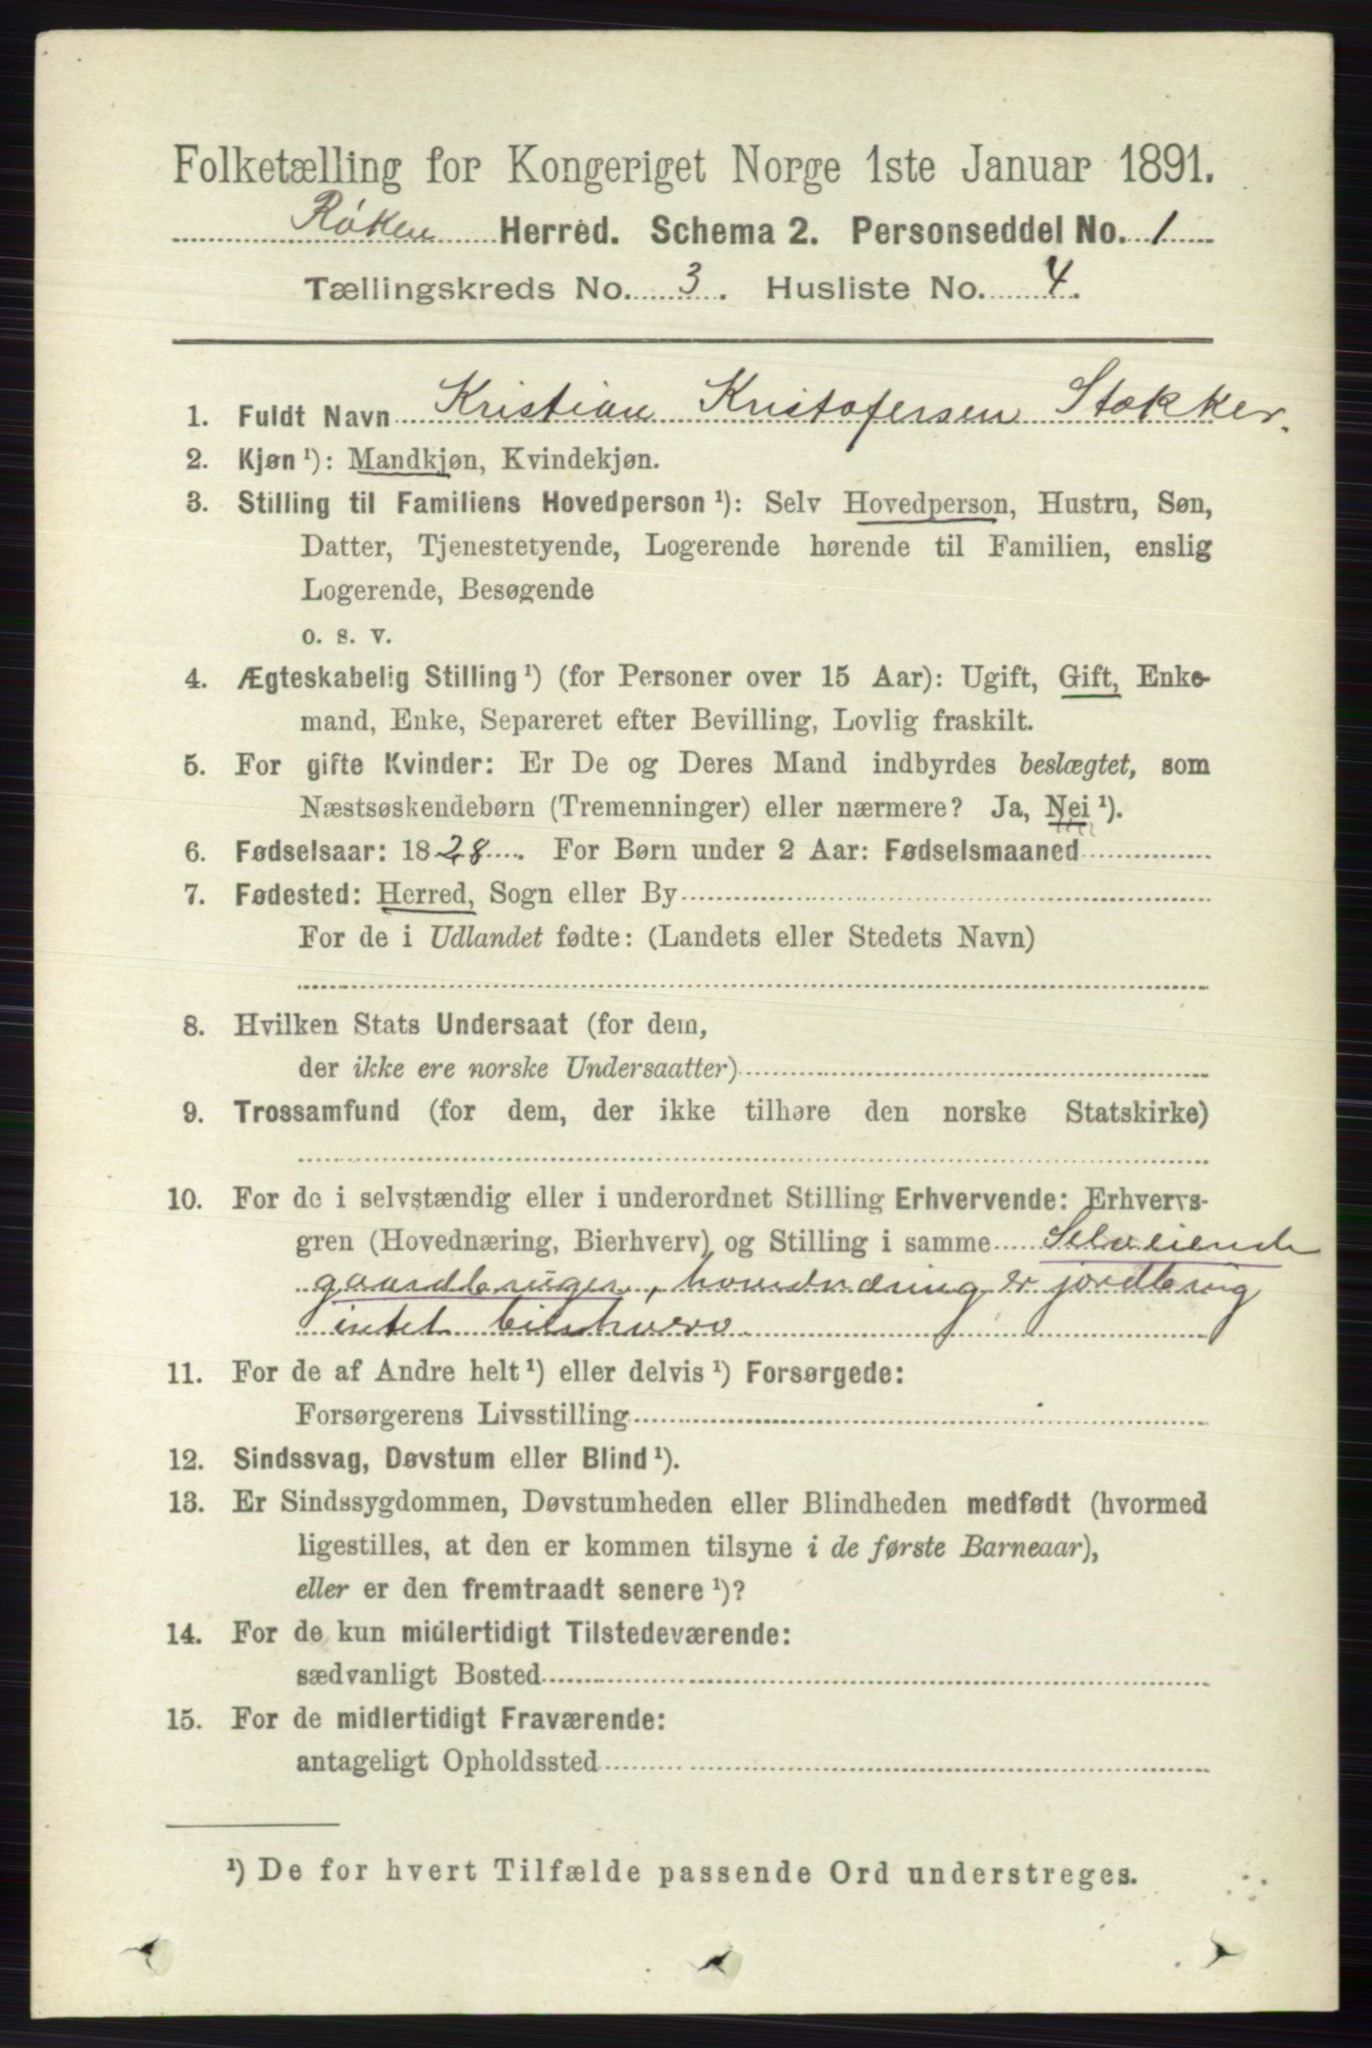 Folketælling for Kongeriget Norge 1ste Januar 1891.
Røken Herred. Schema 2. Personseddel No. 1
Tællingskreds No. 3. Husliste No. 4.
1. Fuldt Navn Kristian Kristofersen Stokker.
2. Kjøn ¹): Mandkjøn, Kvindekjøn.
3. Stilling til Familiens Hovedperson ¹): Selv Hovedperson, Hustru, Søn,
Datter, Tjenestetyende, Logerende hørende til Familien, enslig
Logerende, Besøgende
o. s. v.
4. Ægteskabelig Stilling ¹) (for Personer over 15 Aar): Ugift, Gift, Enke-
mand, Enke, Separeret efter Bevilling, Lovlig fraskilt.
5. For gifte Kvinder: Er De og Deres Mand indbyrdes beslægtet, som
Næstsøskendebørn (Tremenninger) eller nærmere? Ja, Nei ¹).
6. Fødselsaar: 1828. For Børn under 2 Aar: Fødselsmaaned
7. Fødested: Herred, Sogn eller By
For de i Udlandet fødte: (Landets eller Stedets Navn)
8. Hvilken Stats Undersaat (for dem,
der ikke ere norske Undersaatter)
9. Trossamfund (for dem, der ikke tilhøre den norske Statskirke)
10. For de i selvstændig eller i underordnet Stilling Erhvervende: Erhvervs-
gren (Hovednæring, Bierhverv) og Stilling i samme Selveiende
gaardbruger, hovednæring er jordbrug
intet bierhverv
11. For de af Andre helt ¹) eller delvis ¹) Forsørgede:
Forsørgerens Livsstilling
12. Sindssvag, Døvstum eller Blind ¹).
13. Er Sindssygdommen, Døvstumheden eller Blindheden medfødt (hvormed
ligestilles, at den er kommen tilsyne i de første Barneaar),
eller er den fremtraadt senere ¹)?
14. For de kun midlertidigt Tilstedeværende:
sædvanligt Bosted
15. For de midlertidigt Fraværende:
antageligt Opholdssted
¹) De for hvert Tilfælde passende Ord understreges.